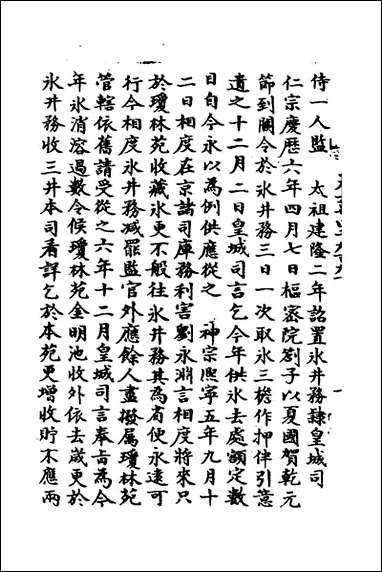 侍一人監　太祖建隆二年詔置氷井務隸皇城司
仁宗慶曆六年四月七日樞密院劄子以夏國賀乾元
節到闕令於氷井務三日一次取氷三檐作押伴引意
遺之十二月二日皇城司言乞今年供氷去處額定數
目自今永以為例供應從之　神宗熙寧五年九月十
二日相度在京諸司庫務利害劉永淵言相度將來只
於瓊林苑收藏氷更不般往氷井務其為省便永遠可
行今相度氷井務減罷監官外應餘人盡撥屬瓊林苑
管轄依舊請受從之六年十二月皇城司言奉旨為今
年氷消溶過數令候瓊林苑金明池收外依去歲更於
氷井務收三井本司看詳乞於本苑更增收貯不應兩